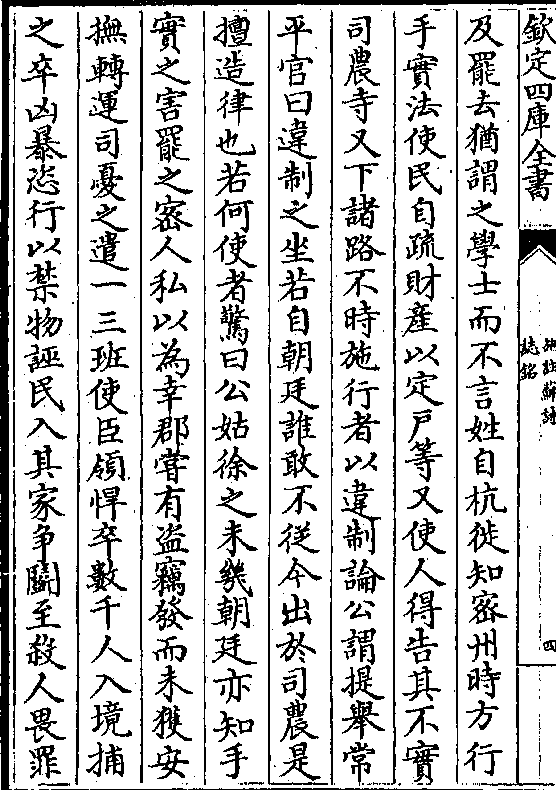 欽定四庫全書
施註蘇詩
誌銘
四
及罷去猶謂之學士而不言姓自杭徙知密州時方行
手實法使民自疏財產以定戶等又使人得告其不實
司農寺又下諸路不時施行者以違制論公謂提舉常
平官曰違制之坐若自朝廷誰敢不從今出於司農是
擅造律也若何使者驚曰公姑徐之未幾朝廷亦知手
實之害罷之密人私以為幸郡嘗有盜竊發而未獲安
撫轉運司憂之遣一三班使臣領悍卒數千人入境捕
之卒凶暴恣行以禁物誣民入其家爭鬭至殺人畏罪